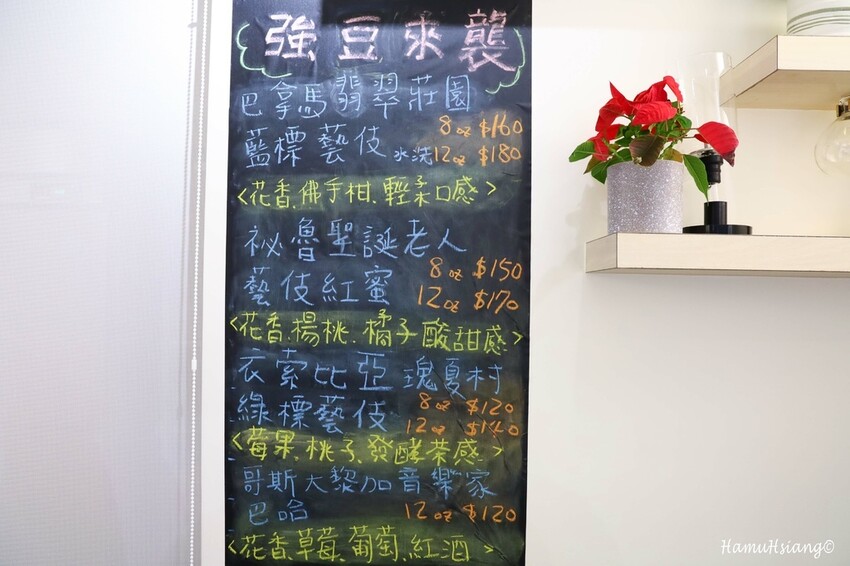 強豆來襲
巴拿馬翡翠莊園
8oz $160
藍標藝伎 水洗 12oz $180
<花香、佛手柑、輕柔口感>
祕魯聖誕老人
8oz $150
藝伎紅蜜 12oz $170
<花香.楊桃.橘子酸甜感>
衣索比亞瑰夏村
8oz $120
綠標藝伎 12oz $140
<莓果.桃子.發酵茶感>
哥斯大黎加音樂家
巴哈 12oz $120
<花香.草莓.葡萄.紅酒>
HamuHsiang©